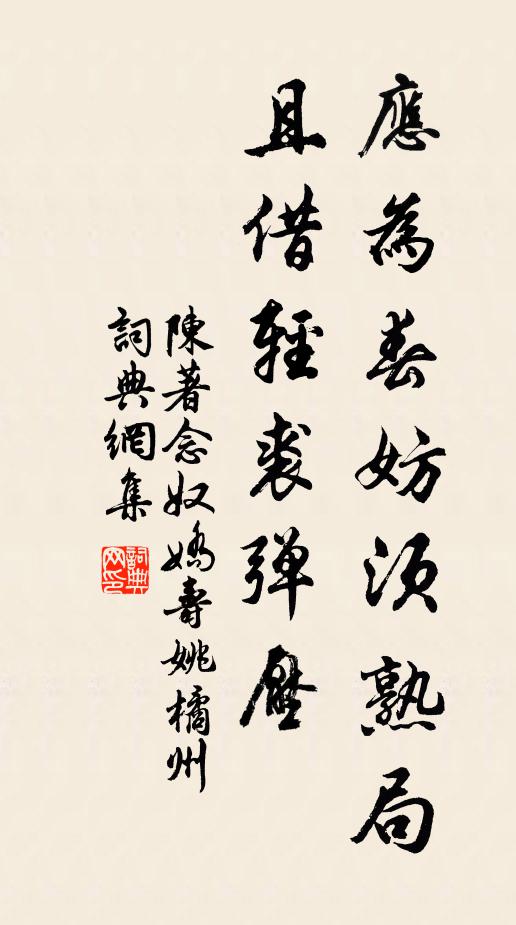 應為春妨須熟局
且借輕裘彈壓
陳著念奴嬌壽姚橘州
詞典網集
詞典網印